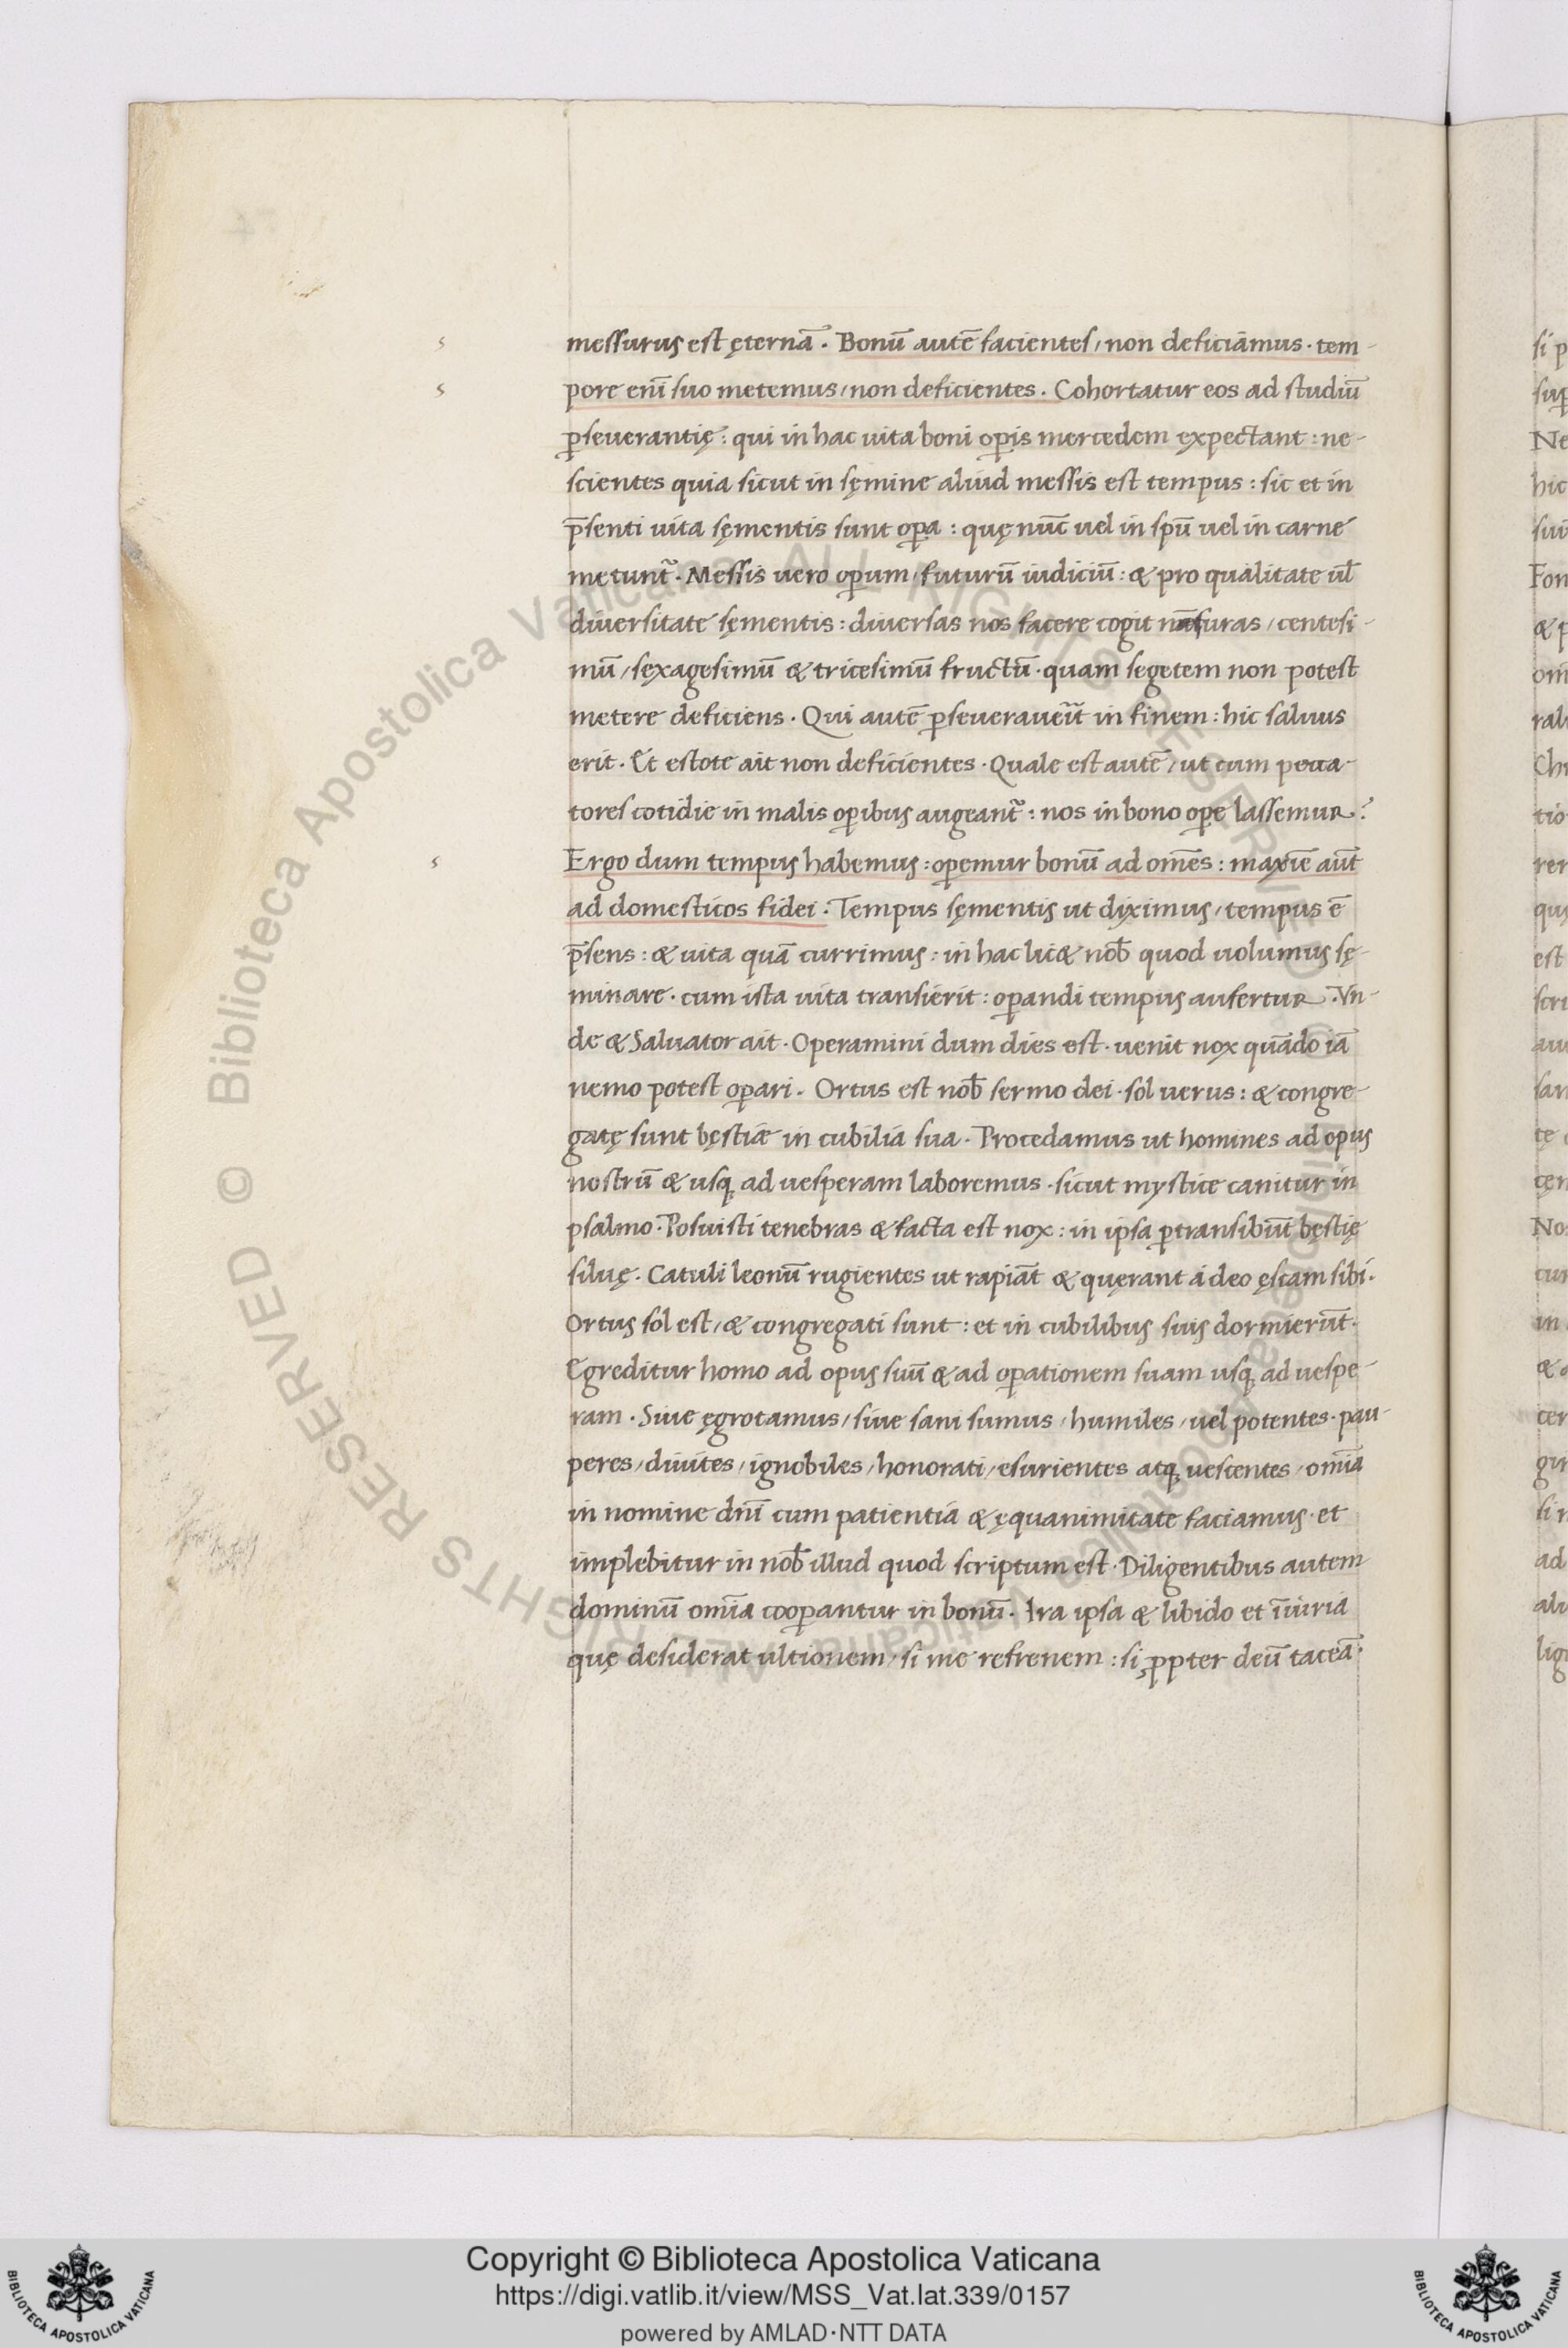 messurus est ęternā. Bonū autē facientes/ non deficiamus. tem-
pore enī suo metemus/ non deficientes. Cohortatur eos ad studiū
p̲seuerantię: qui in hac uita boni op̲is mercedem expectant: ne-
scientes quia sicut in sęmine aliud messis est tempus: sic et in
p̄senti uita sęmentis sunt op̲a: quę nūc uel in spū uel in carne
metunt᷑. Messis uero op̲um/ futurū iudiciū: & pro qualitate ul̄
diuersitate sęmentis: diuersas nos facere cogit suras/ centesi-
mū/ sexagesimū & tricesimū fructū. quam segetem non potest
metere deficiens. Qui autē p̲seuerauerīt in finem: hic saluus
erit. Et estote ait non deficientes. Quale est autē/ ut cum pecca-
tores cotidie in malis op̲ibus augeant᷑: nos in bono op̲e lassemur?
Ergo dum tempus habemus: op̲emur bonū ad om̄es: maxīe aūt
ad domesticos fidei: Tempus sęmentis ut diximus/ tempus ē
p̄sens: & uita quā currimus: in hac lic& nob̄ quod uolumus sę-
minare. cum ista uita transierit: op̲andi tempus aufertur. Vn-
de & Saluator ait. Operamini dum dies est. uenit nox quādo iā
nemo potest op̲ari. Ortus est nob̄ sermo dei. sol uerus: & congre-
gatę sunt bęstiæ in cubilia sua. Procedamus ut homines ad opus
nostrū & usq; ad uesperam laboremus. sicut mystice canitur in
psalmo. Posuisti tenebras & facta est nox: in ipsa p̲transibūt bęstię
siluę. Catuli leonū rugientes ut rapiāt & quęrant á deo ęscam sibi.
Ortus sol est/ & congregati sunt: et in cubilibus suis dormierūt.
Egreditur homo ad opus suū & ad op̲ationem suam usq; ad uespe-
ram. Siue ęgrotamus/ siue sani sumus/ humiles/ uel potentes. pau-
peres/ diuites/ ignobiles/ honorati/ esurientes atq; uescentes/ om̄ia
in nomine dn̄i cum patientia & ęquanimitate faciamus. et
implebitur in nob̄ illud quod scriptum est. Diligentibus autem
dominū om̄ia coop̲antur in bonū. Ira ipsa & libido et īiuria
quę desiderat ultionem/ si me refrenem: si ꝓpter deū taceā.
si p
sup̲
Ne
hic
sui
Fon
& p
om̄
ral
Chr
tio
rer
qus
est
scri
au
san
tę
tęn
No
cur
in
& a
cer
gin
si n
ad
ali
lig
Biblioteca Apostolica Vaticana ALL RIGHTS RESERVED ©
Biblioteca Apostolica Vaticana ALL RIGHTS RESERVED ©
Copyright © Biblioteca Apostolica Vaticana
https://digi.vatlib.it/view/MSS_Vat.lat.339/0157
powered by AMLAD·NTT DATA
BIBLIOTECA APOSTOLICA VATICANA
BIBLIOTECA APOSTOLICA VATICANA